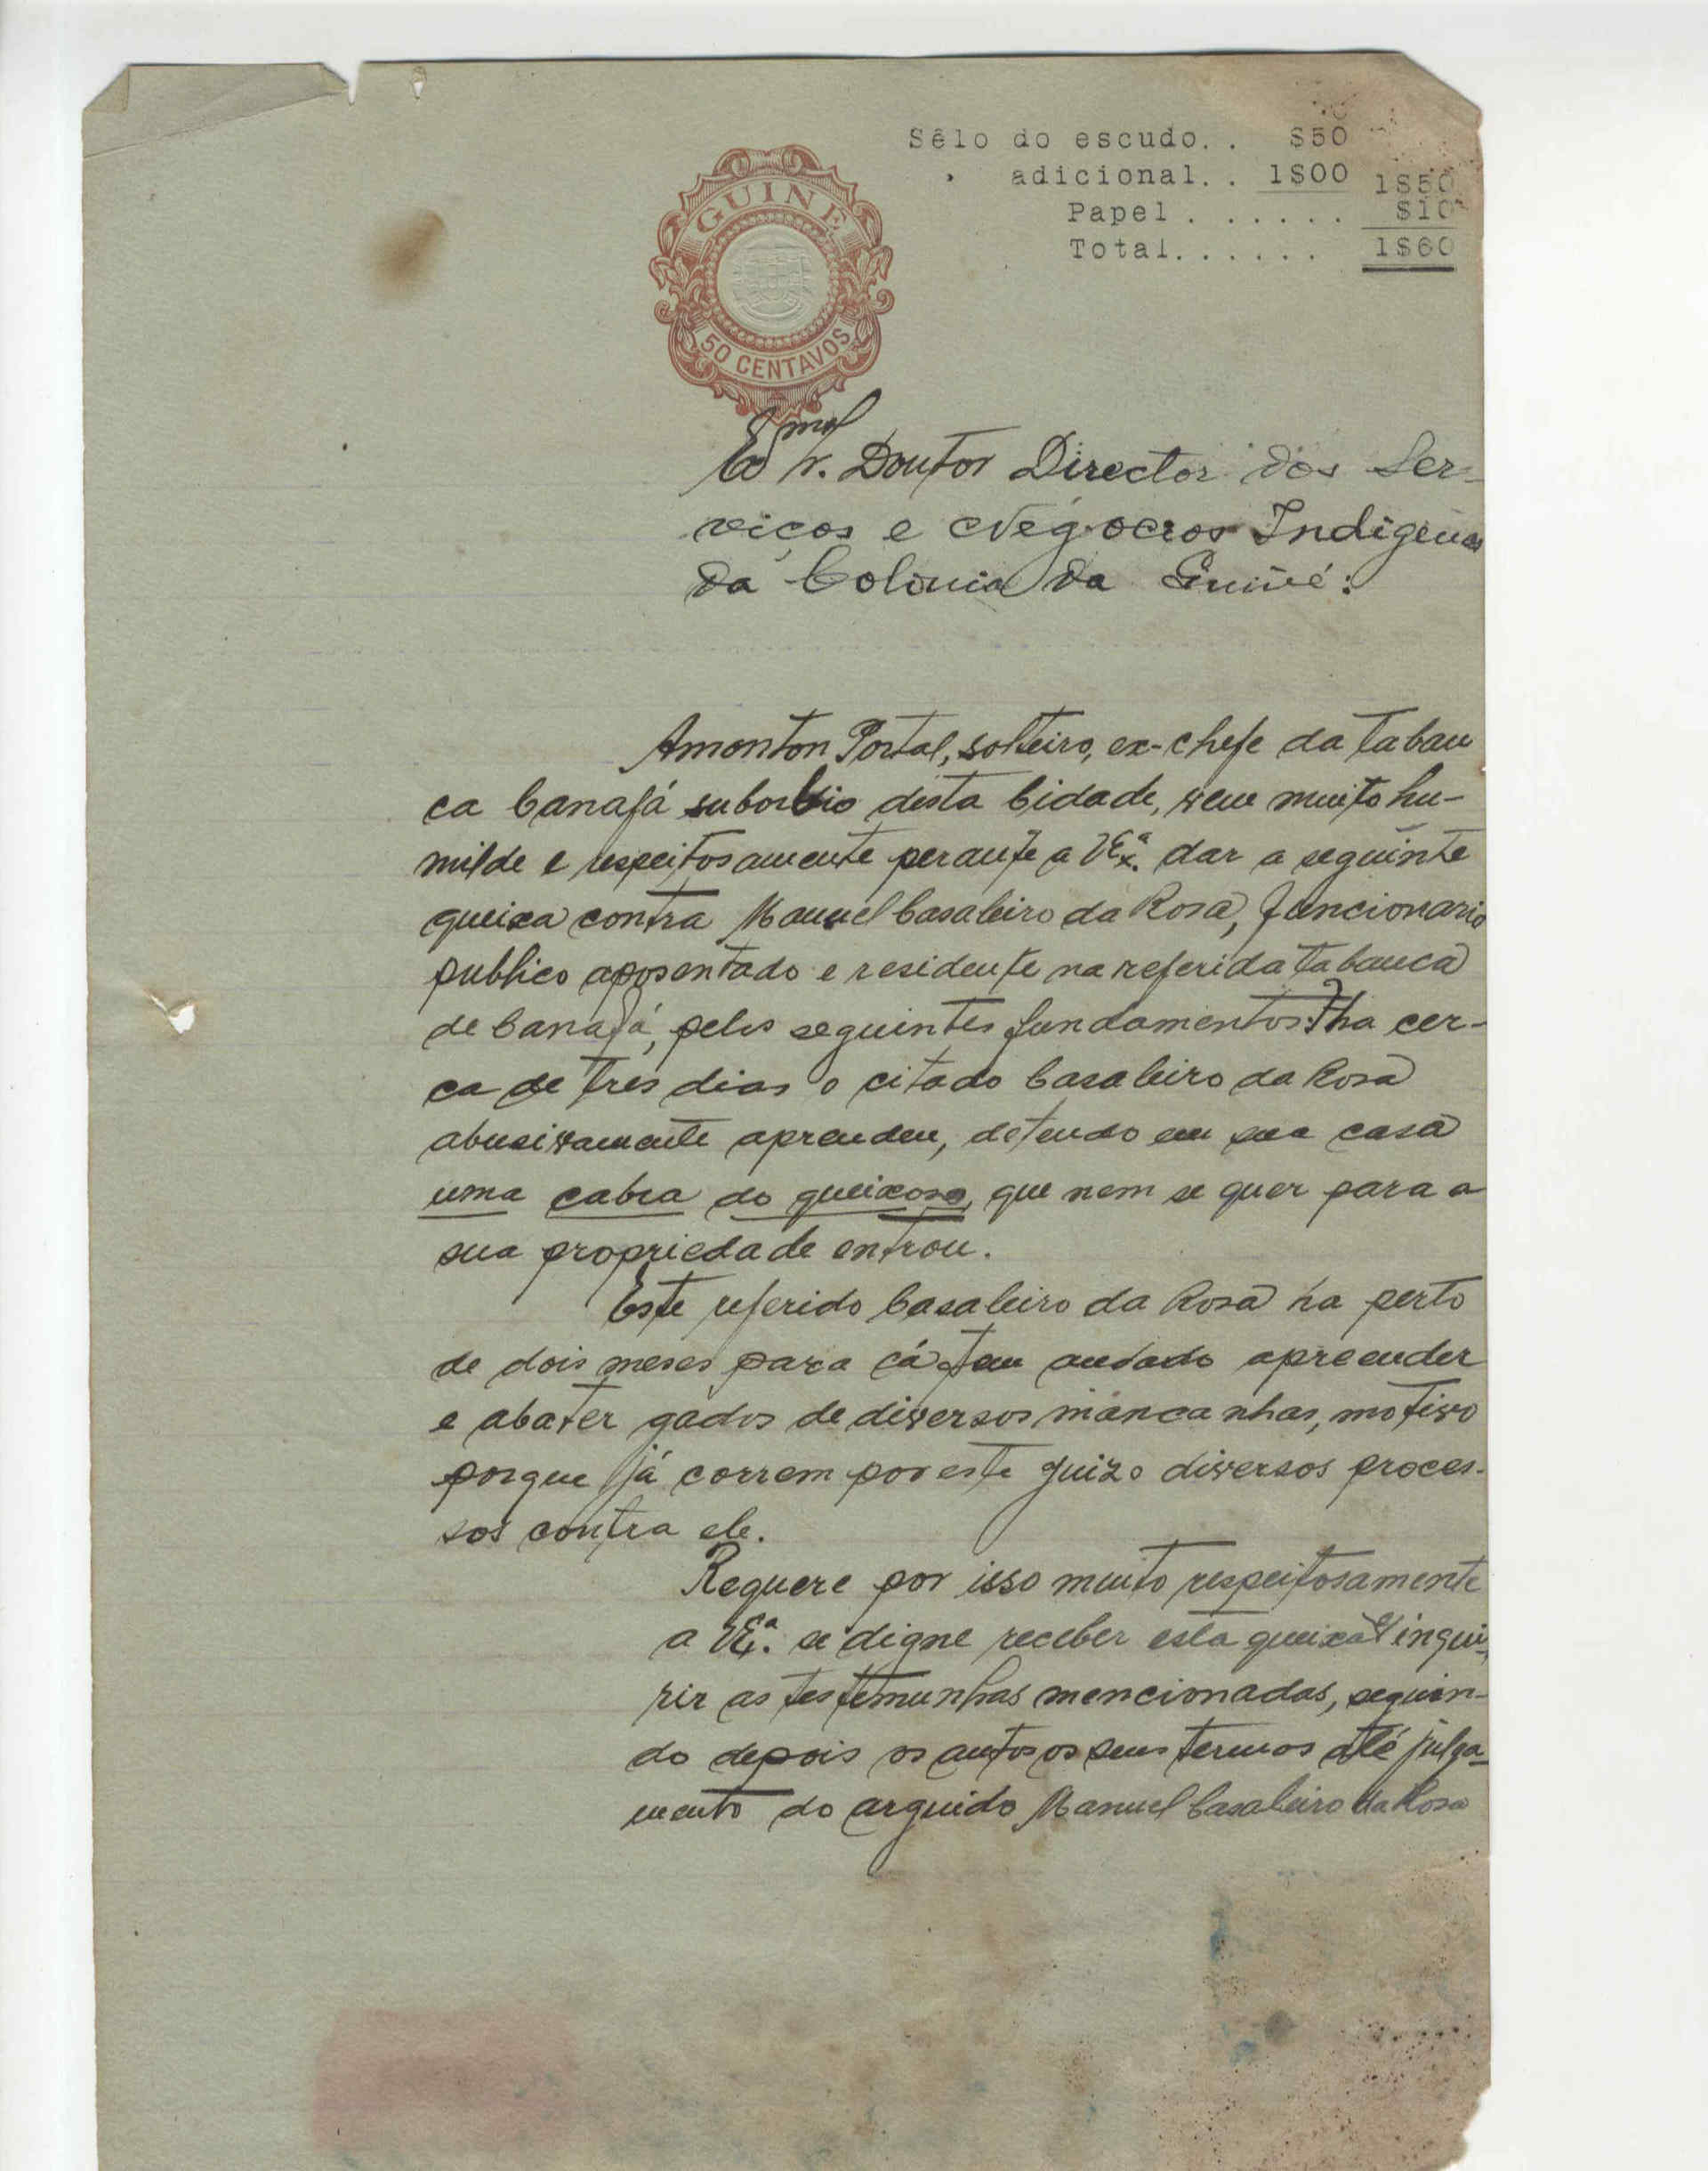 Sêlo do escudo. . $50
adicional. . 1$00 1$50
Papel . . . . . . $10
Total. . . . . . 1$60
GUINÉ
50 CENTAVOS
Exmo Sr. Doutor Director dos Ser-
viços e Négocios Indigenas
da Colonia da Guiné:
Amonton Portal, solteiro, ex-chefe da taban
ca Canafá suborbio desta Cidade, vem muito hu-
milde e respeitosamente perante a VExª. dar a seguinte
queixa contra Manuel Casaleiro da Rosa, funcionario
publico aposentado e residente na referida tabanca
de Canafá, pelos seguintes fundamentos: ha cer-
ca de tres dias o citado Casaleiro da Rosa
abusivamente aprendeu, detendo em sua casa
uma cabra do queixoso, que nem se quer para a
sua propriedade entrou.
Este referido Casaleiro da Rosa ha perto
de dois meses para cá tem andado apreender
e abater gados de diversos mancanhas, motivo
porque já correm por este juizo diversos proces-
sos contra ele.
Requere por isso muito respeitosamente
a VExª. se digne receber esta queixa e inqui-
rir as testemunhas mencionadas, seguin-
do depois os autos os seus termos até julga-
mento do arguido Manuel Casaleiro da Rosa